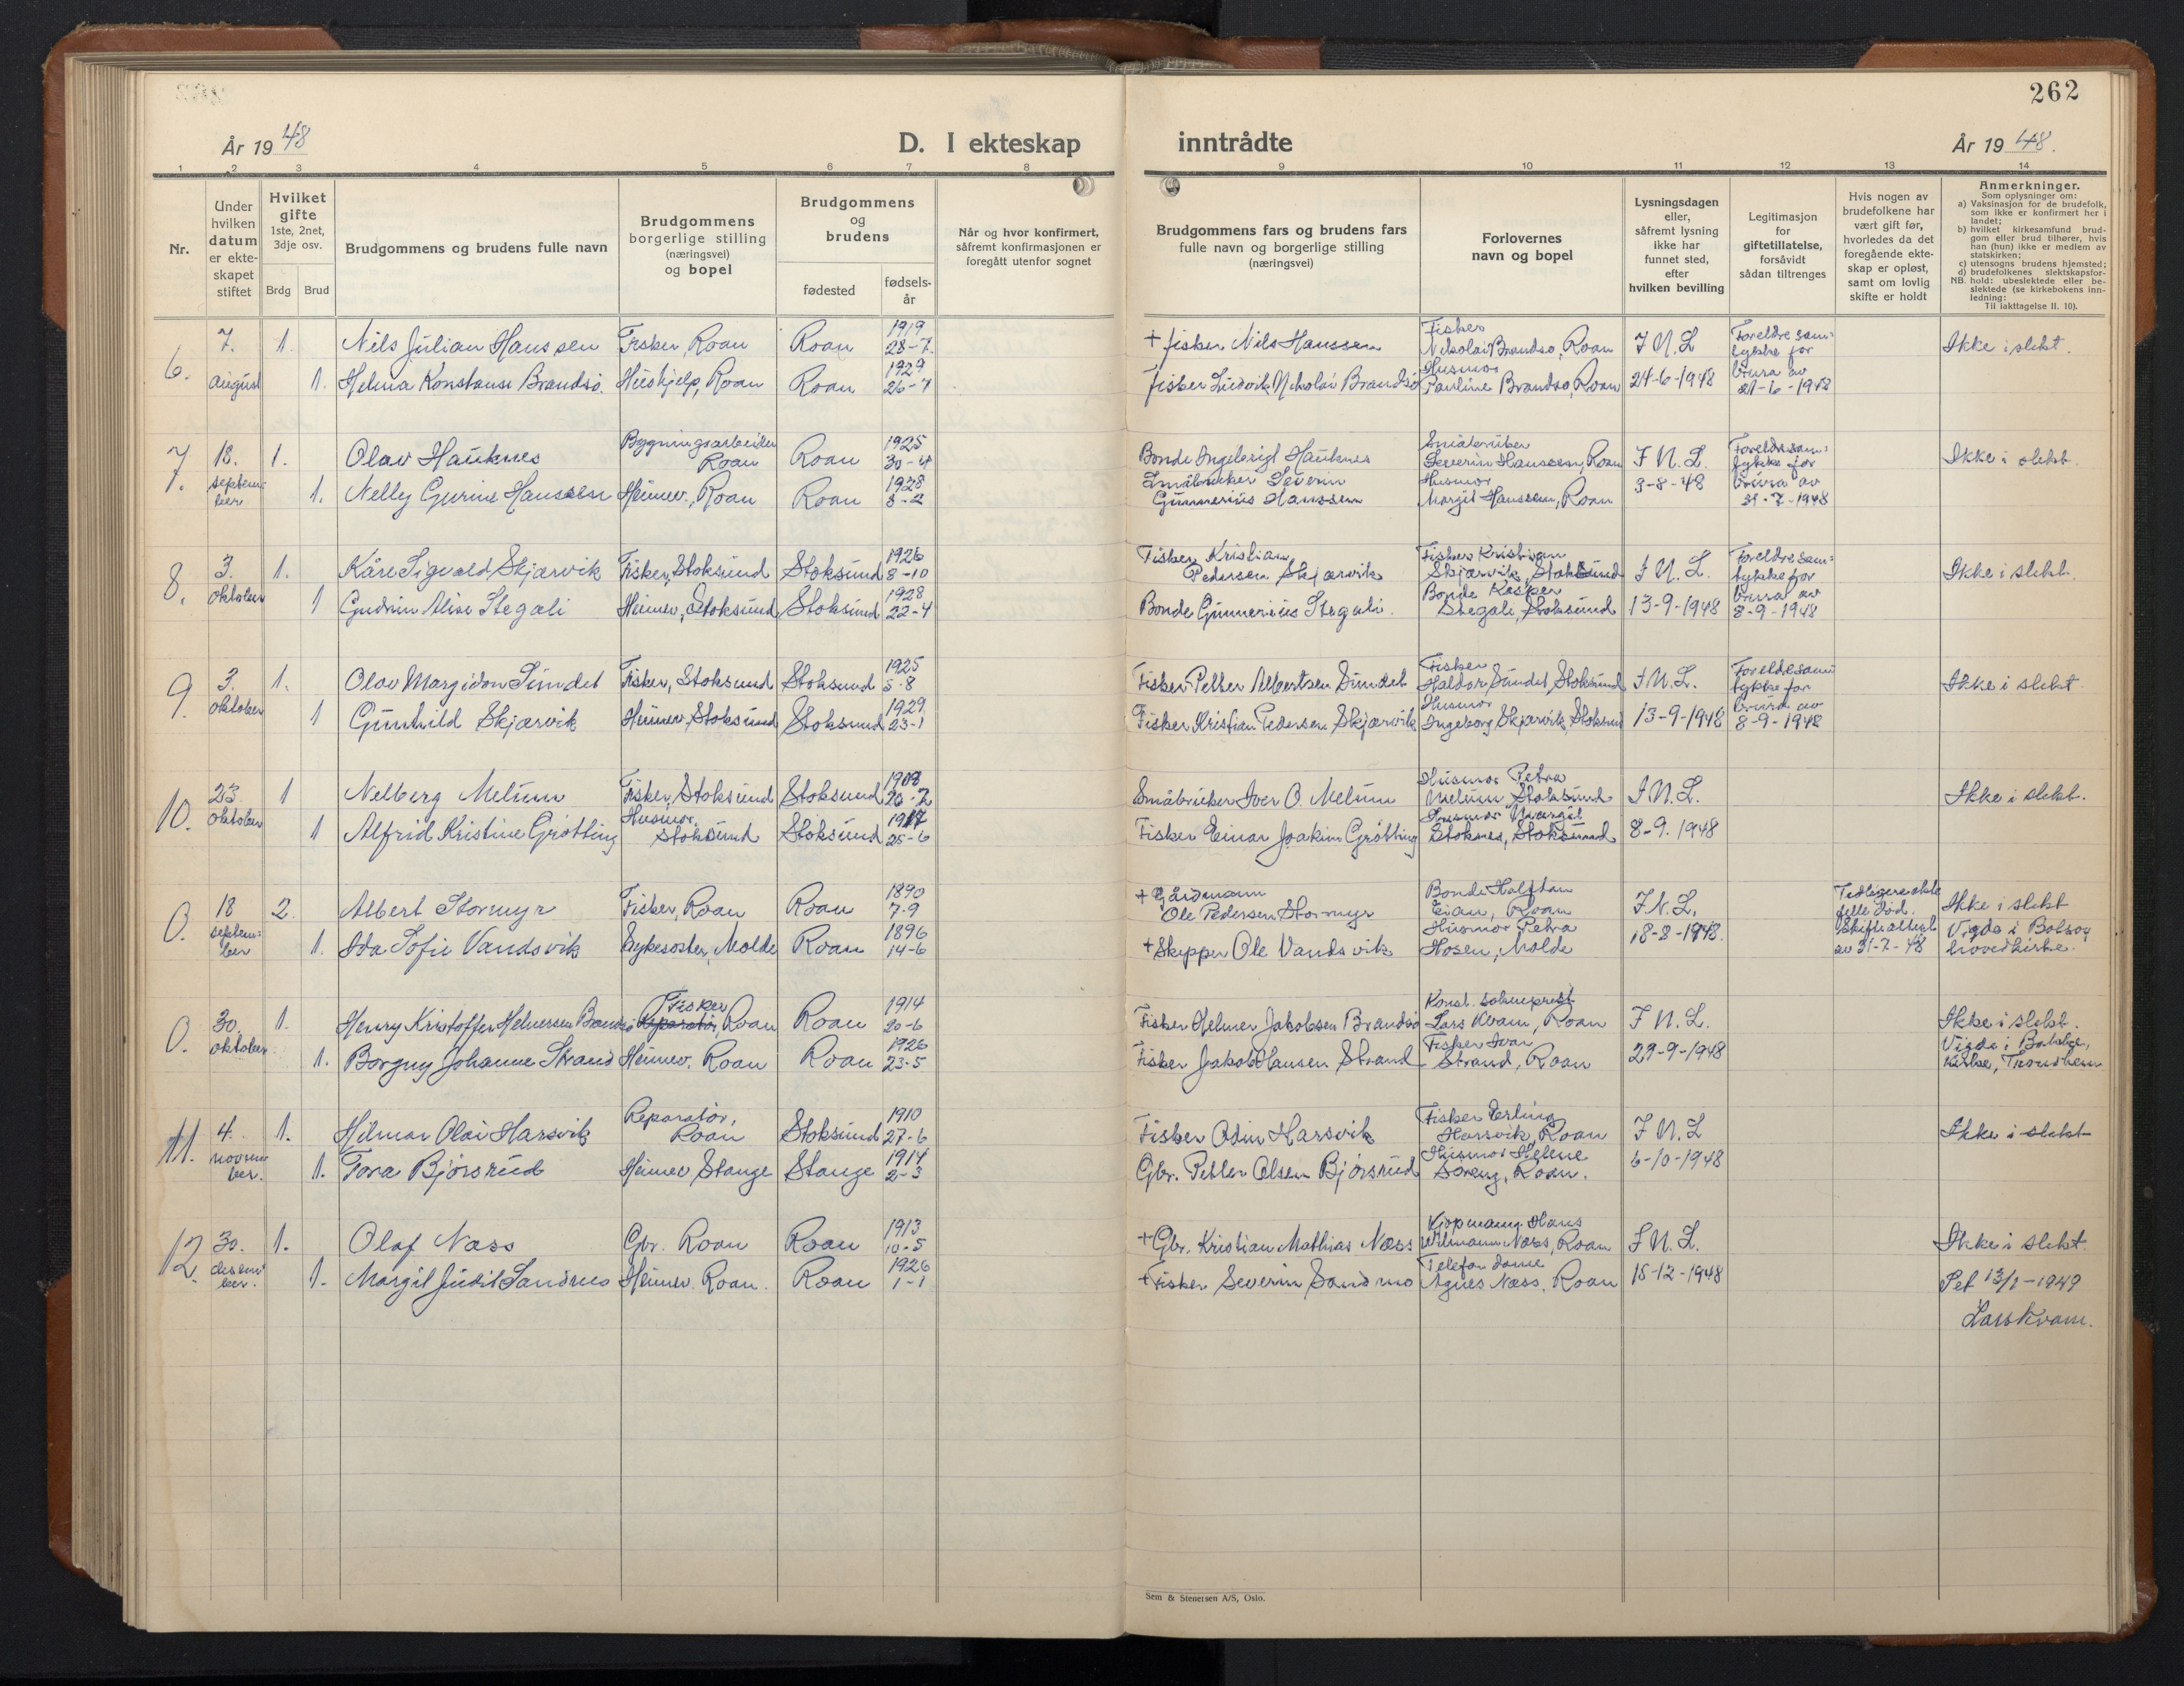 262
År 1948
D. I ekteskap inntrådte
År 1948.
1 2 3 4 5 6 7 8 9 10 11 12 13 14
Nr.
Under hvilken datum er ekteskapet stiftet
Hvilket gifte 1ste, 2net, 3dje osv.
Brdg Brud
Brudgommens og brudens fulle navn
Brudgommens borgerlige stilling (næringsvei) og bopel
Brudgommens og brudens
fødested
fødsels-år
Når og hvor konfirmert, såfremt konfirmasjonen er foregått utenfor sognet
Brudgommens fars og brudens fars fulle navn og borgerlige stilling (næringsvei)
Forlovernes navn og bopel
Lysningsdagen eller, såfremt lysning ikke har funnet sted, efter hvilken bevilling
Legitimasjon for giftetillatelse, forsåvidt sådan tiltrenges
Hvis nogen av brudefolkene har vært gift før, hvorledes da det foregående ekteskap er opløst, samt om lovlig skifte er holdt
Anmerkninger.
Som oplysninger om:
a) Vaksinasjon for de brudefolk, som ikke er konfirmert her i landet;
b) hvilket kirkesamfund brudgom eller brud tilhører, hvis han (hun) ikke er medlem av statskirken;
c) utensogns brudens hjemsted;
d) brudefolkenes slektskapsforhold: ubeslektede eller beslektede (se kirkebokens innledning:
NB. Til iakttagelse II. 10).
6. 7. 1. Nils Julian Hanssen Fisker, Roan Roan 1919 28-7. + fisker Nils Hanssen Fisker Nikolai Brandsø, Roan F.N.L Foreldre sam-
august 1. Helma Konstanse Brandsø. Hushjelp, Roan Roan 1929 26-7 Fisker Ludvik Nikolai Brandsø Husmor Pauline Brandsø, Roan 24-6-1948 tykke for brura av 21-6-1948 Ikke i slekt.
7. 18. 1. Olav Hauknes Bygningsarbeider Roan Roan 1925 30-4 Bonde Ingebrigt Hauknes Småbruker Severin Hanssen, Roan F.N.L. Foreldresam-
september 1. Nelly Gurine Hanssen Heimev., Roan Roan 1928 8-2 Småbruker Severin Gunnerius Hanssen Husmor Margit Hanssen, Roan 3-8-48 tykke for brura av 31-7-1948 Ikke i slekt.
8. 3. 1. Kåre Sigvald Skjærvik Fisker, Stoksund Stoksund 1926 8-10 Fisker Kristian Pedersen Skjærvik Fisker Kristian Skjærvik, Stoksund F.N.L. Foreldre sam-
oktober 1 Gudrun Alise Stegali Heimev., Stoksund Stoksund 1928 22-4 Bonde Gunnerius Stegali. Bonde Kasper Stegali, Stoksund 13-9-1948 tykke for brura av 8-9-1948 Ikke i slekt.
9. 3. 1. Olav Margidon Sundet Fisker, Stoksund Stoksund 1925 5-8 Fisker Petter Albertsen Sundet Fisker Haldor Sundet, Stoksund F.N.L. Foreldresam-
oktober 1 Gunhild Skjærvik Heimev., Stoksund Stoksund 1929 23-1 Fisker Kristian Pedersen Skjærvik Husmor Ingeborg Skjærvik, Stoksund 13-9-1948 tykke for brura av 8-9-1948 Ikke i slekt.
10. 23. 1 Nelberg Melum Fisker, Stoksund Stoksund 1908 26-2 Småbruker Iver O. Melum Husmor Petra Melum, Stoksund F.N.L. Ikke i slekt.
oktober 1 Alfrid Kristine Grøtting Husmor, Stoksund Stoksund 1917 25-6 Fisker Einar Joakim Grøtting Husmor Margit Stoknes, Stoksund 8-9-1948
0. 18 2. Albert Stormyr Fisker, Roan Roan 1890 7-9 + Gårdmann Ole Pedersen Stormyr Bonde Halftan Eian, Roan F.N.L. Tidligere ekte-
september 1. Ida Sofie Vandsvik Sykesøster, Molde Roan 1896 14-6 + Skipper Ole Vandsvik Husmor Petra Hosen, Molde 18-8-1948. felle død. Skifteattest av 31-7-48 Ikke i slekt Vigde i Bolsøy hovedkirke.
0. 30. 1. Henry Kristoffer Helmersen Brandsø Fisker Reparatør, Roan Roan 1914 20-6 Fisker Helmer Jakobsen Brandsø Konst. sokneprest Lars Kvam, Roan F.N.L. Ikke i slekt.
oktober 1. Borgny Johanne Strand Heimev. Roan Roan 1926 23-5 Fisker Jakob Hansen Strand Fisker Ivar Strand, Roan 29-9-1948 Vigde i Bakke, kirke, Trondheim
11. 4. 1. Hilmar Olai Harsvik Reparatør, Roan Stoksund 1910 27-6 Fisker Odin Harsvik Fisker Erling Harsvik, Roan F.N.L Ikke i slekt
november. 1. Tora Bjørsrud Heimev Stange Stange 1914 2-3 Gbr. Petter Olsen Bjørsrud Husmor Helene Søreng, Roan. 6-10-1948
12. 30. 1. Olaf Næss Gbr. Roan Roan 1913 10-5 + Gbr. Kristian Mathias Næss Kjøpmann Hans Wilmann Næss, Roan F.N.L. Ikke i slekt.
desember. 1. Margit Judit Sandmo Heimev. Roan. Roan 1926 1-1 + Fisker Severin Sandmo Telefondame Agnes Næss. Roan 15-12-1948
Set 13/1-1949
Lars Kvam.
Sem & Stenersen A/S, Oslo.